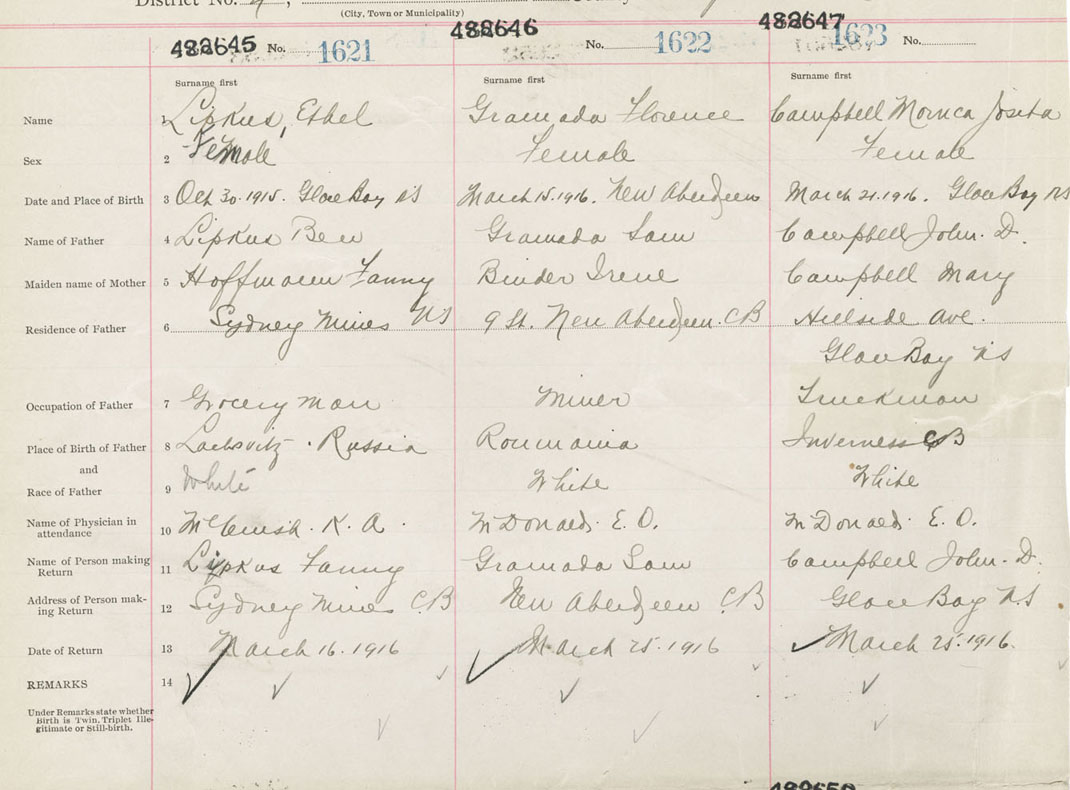 District No.
(City, Town or Municipality)
482645 No. 1621
482646 No. 1622
482647 1623 No.
Surname first Surname first Surname first
Name 1 Lipkus, Ethel Gramada Florence Campbell Monica Josita
Sex 2 Female Female Female
Date and Place of Birth 3 Oct 30.1915. Glace Bay NS March 15.1916. New Aberdeen March 21.1916. Glace Bay NS
Name of Father 4 Lipkus Ben Gramada Sam Campbell John. D.
Maiden name of Mother 5 Hoffmann Fanny Binder Irene Campbell Mary
Residence of Father 6 Sydney Mines NS 9 St. New Aberdeen. CB Hillside Ave.
Glace Bay NS
Occupation of Father 7 Grocery man Miner Truckman
Place of Birth of Father 8 Russia Roumania Inverness CB
and
Race of Father 9 White White White
Name of Physician in
attendance 10 K. A. McDonald. E. O. McDonald. E. O.
Name of Person making
Return 11 Lipkus Fanny Gramada Sam Campbell John. D.
Address of Person mak-
ing Return 12 Sydney Mines CB New Aberdeen CB Glace Bay N.S
Date of Return 13 March 16.1916 March 25.1916 March 25.1916.
REMARKS 14
Under Remarks state whether
Birth is Twin, Triplet Ille-
gitimate or Still-birth.
482650